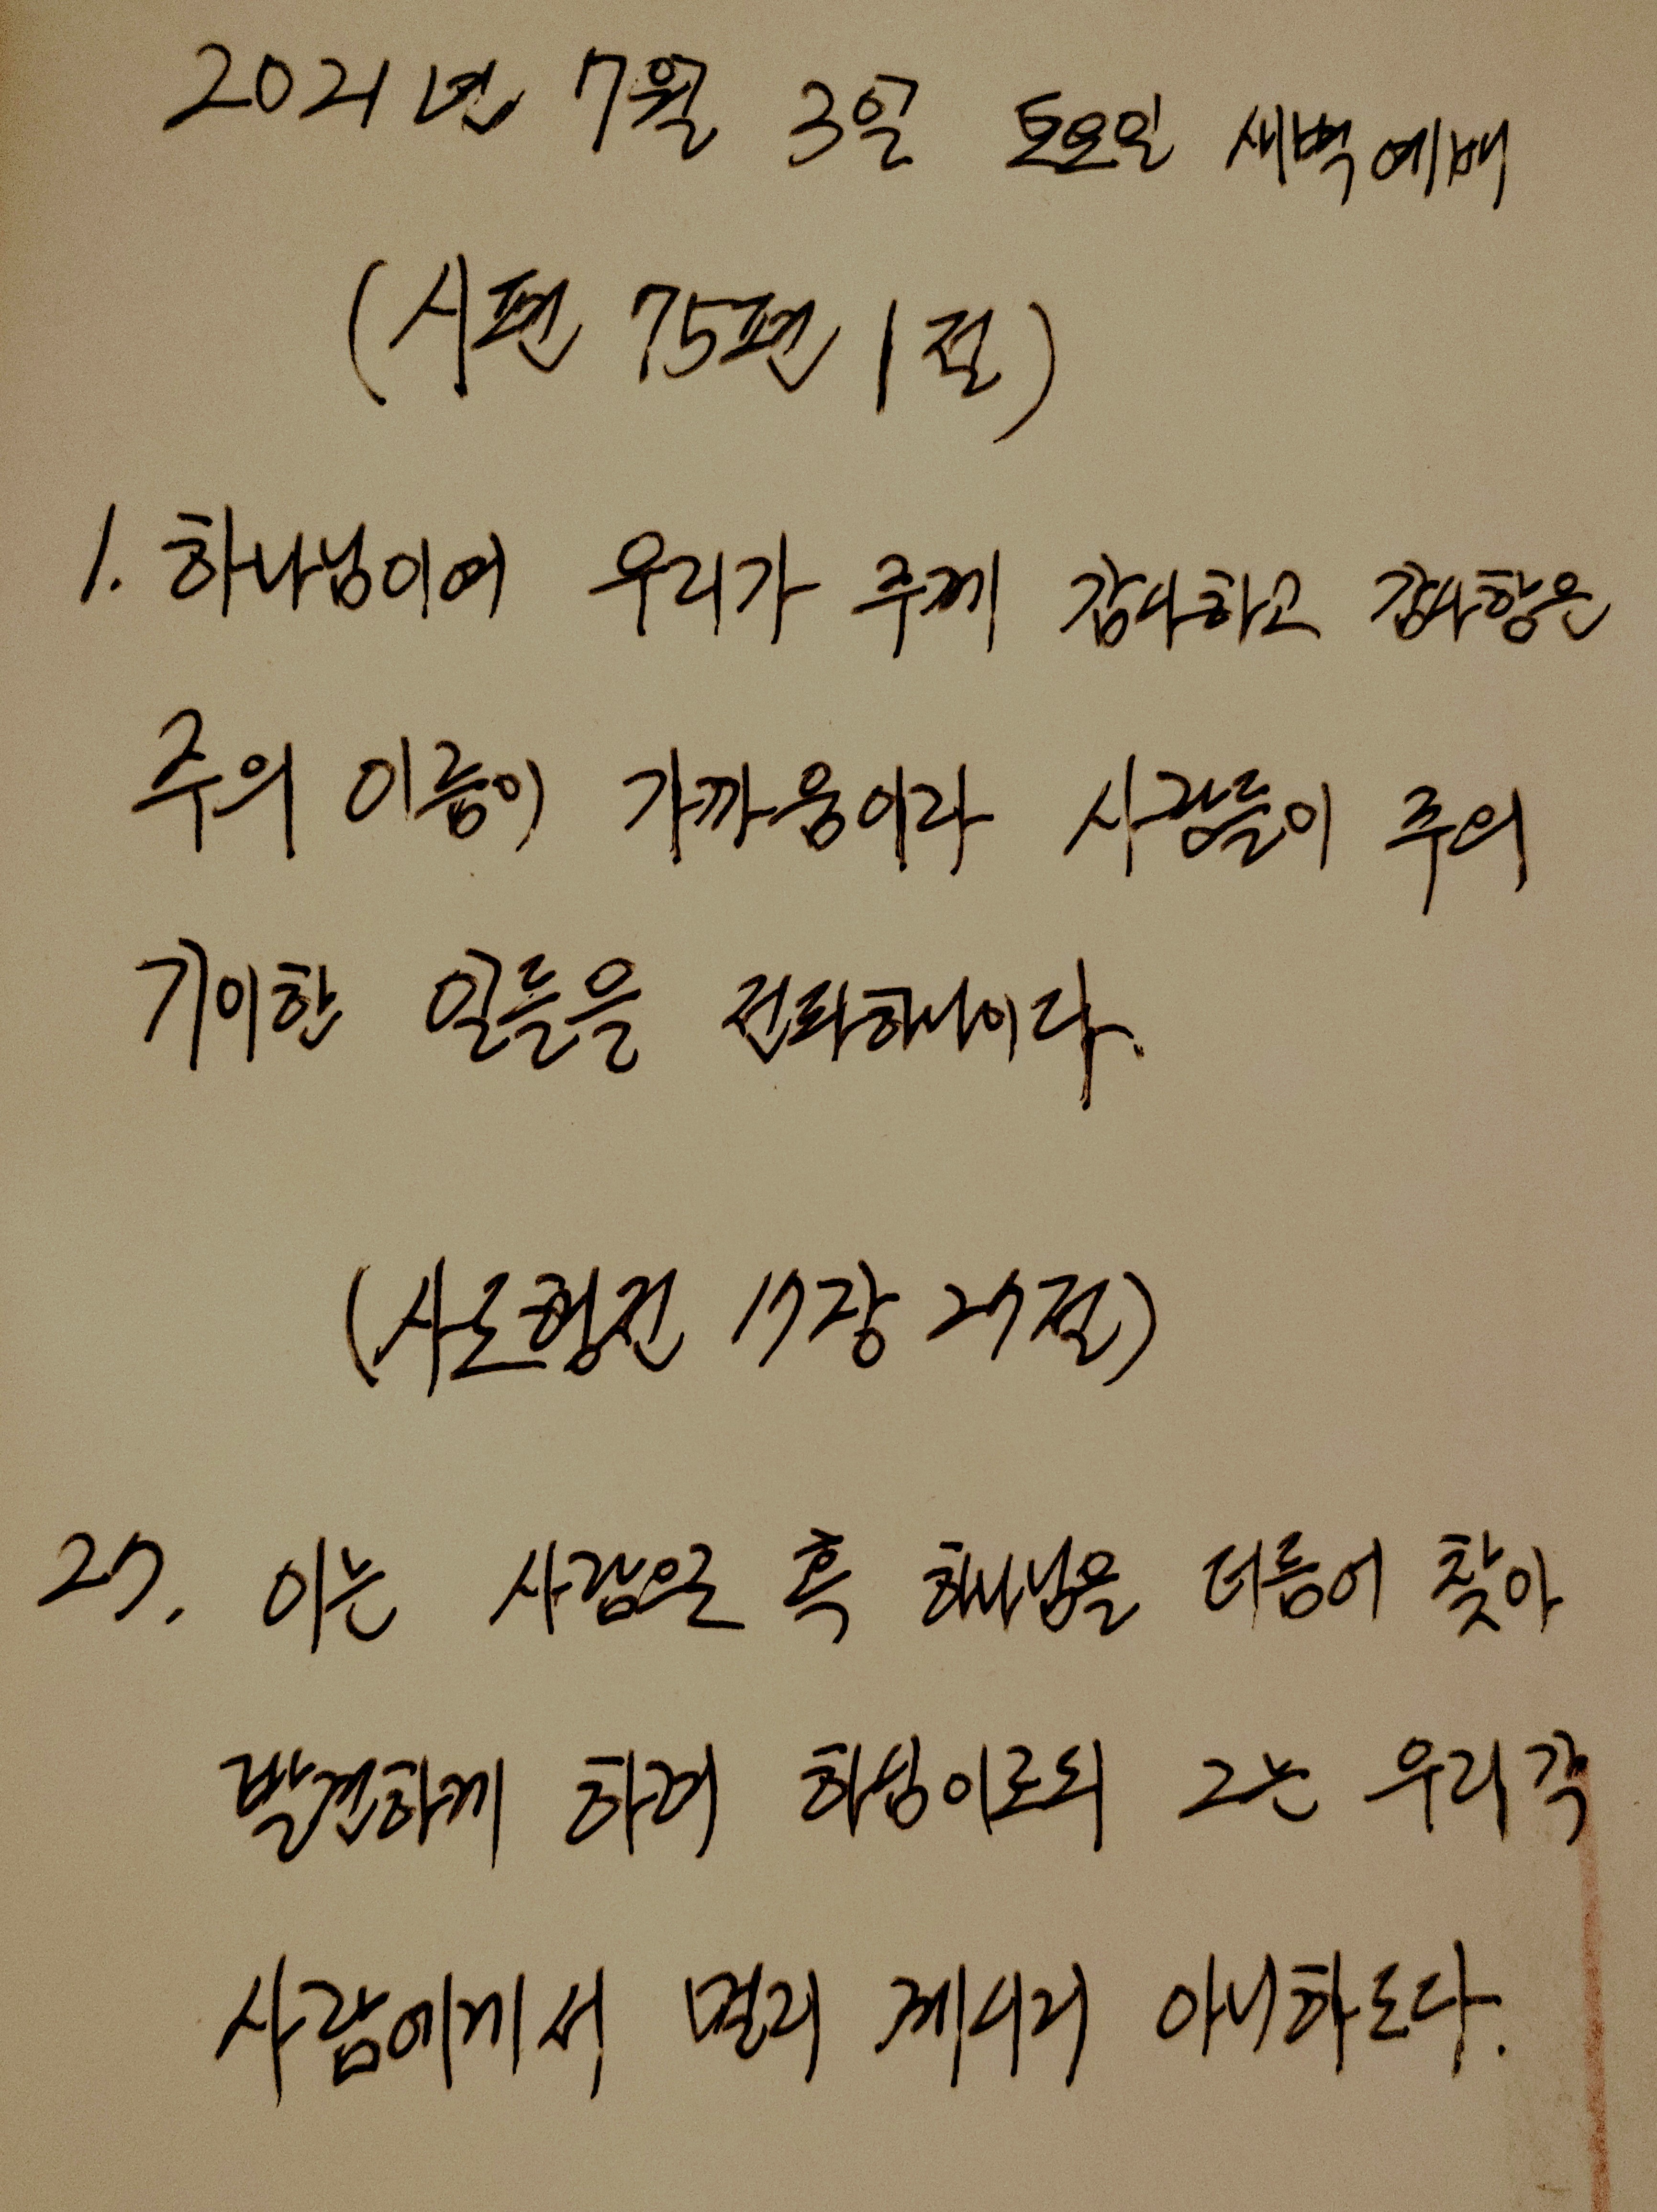 2021년 7월 3일 토요일 새벽예배
(시편 75편 1절)
1. 하나님이여 우리가 주께 감사하고 감사함은
주의 이름이 가까움이라 사람들이 주의
기이한 일들을 전파하나이다.
(사도행전 17장 27절)
27. 이는 사람으로 혹 하나님을 더듬어 찾아
발견하게 하려 하심이로되 그는 우리 각
사람에게서 멀리 계시지 아니하도다.